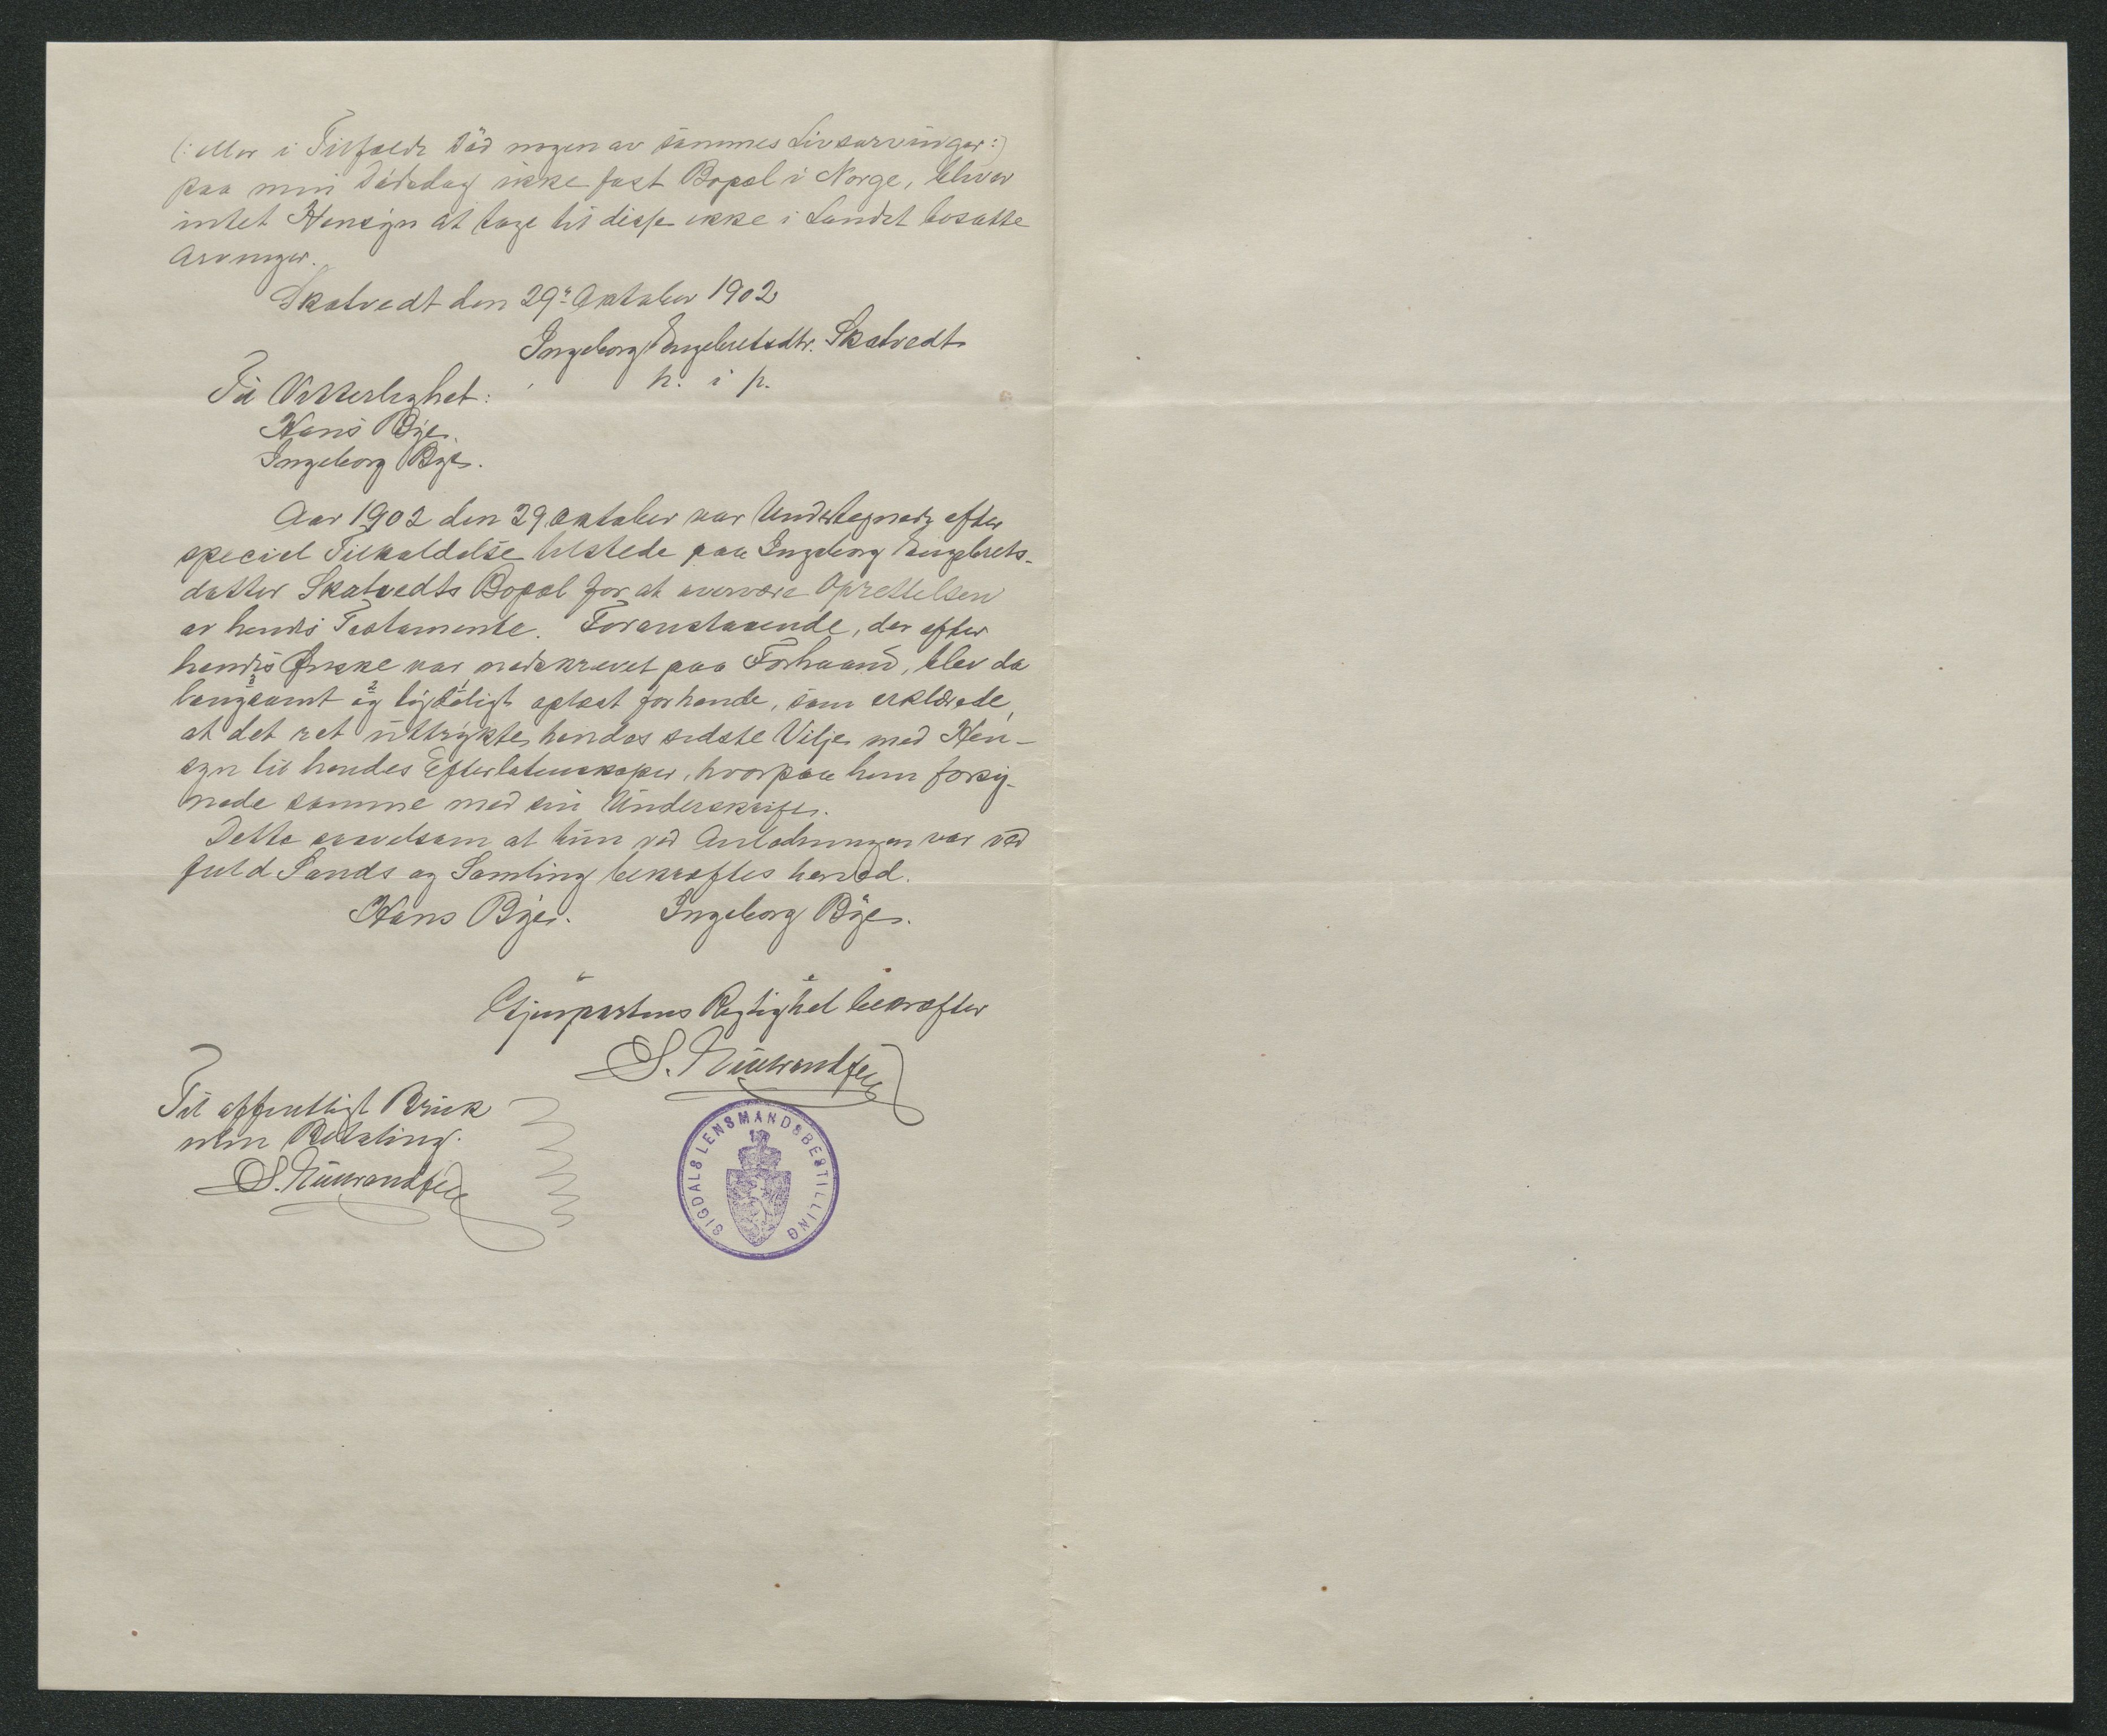 (: eller i Tilfælde Død nogen av sammes Livsarvinger:)
paa min Dødsdag ikke fast Bopæl i Norge, bliver
intet Hensyn at tage til disse ikke i Landet bosatte
Arvinger.
Skatvedt den 29: Oktober 1902
Ingeborg Engebretsdtr. Skatvedt
h. i p.
Til Vitterlighet:
Hans Bye.
Ingeborg Bye.
Aar 1902 den 29 Oktober var Undertegnede efter
speciel Tilkaldelse tilstede paa Ingeborg Engebrets-
datter Skatvedts Bopæl for at overvære Oprettelsen
av hendes Testamente. Foranstaaende, der efter
hendes Ønske var nedskrevet paa Forhaand, blev da
langsomt og tydeligt oplæst for hende, som erklærede,
at det ret uttrykte hendes sidste Vilje med Hen-
syn til hendes Efterladenskaper, hvorpaa hun forsy-
nede samme med sin Underskrift.
Dette saavelsom at hun ved Anledningen var ved
fuld Sands og Samling bekræftes herved.
Hans Bye. Ingeborg Bye.
Gjenpartens Rigtighet bekræfter
S.
Til offentligt Bruk
uten Betaling.
S.
SIGDALS LENSMANDSBESTILLING